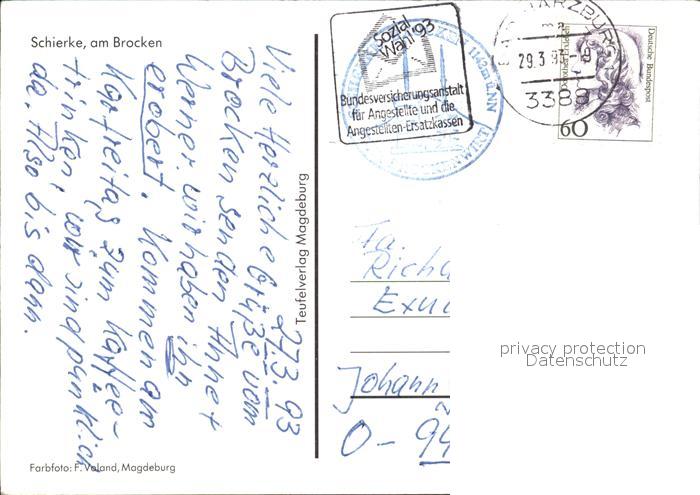 Schierke, am Brocken
27.3.93
Viele Herzliche Grüße vom
Brocken senden Annet
Werner. wir haben ihn
erobert. Kommen am
Karfreitag zum Kaffee-
trinken, wir sind pünktlich
da. Also bis dann.
Farbfoto: F. Voland, Magdeburg
Teufelverlag Magdeburg
Sozial
Wahl '93
Bundesversicherungsanstalt
für Angestellte und die
Angestellten-Ersatzkassen
1142 m ü. NN
HARZBURG
29.3.93-
3388
Deutsche Bundespost
60
Fa.
Richa
Exn
Johann
O-94
privacy protection
Datenschutz